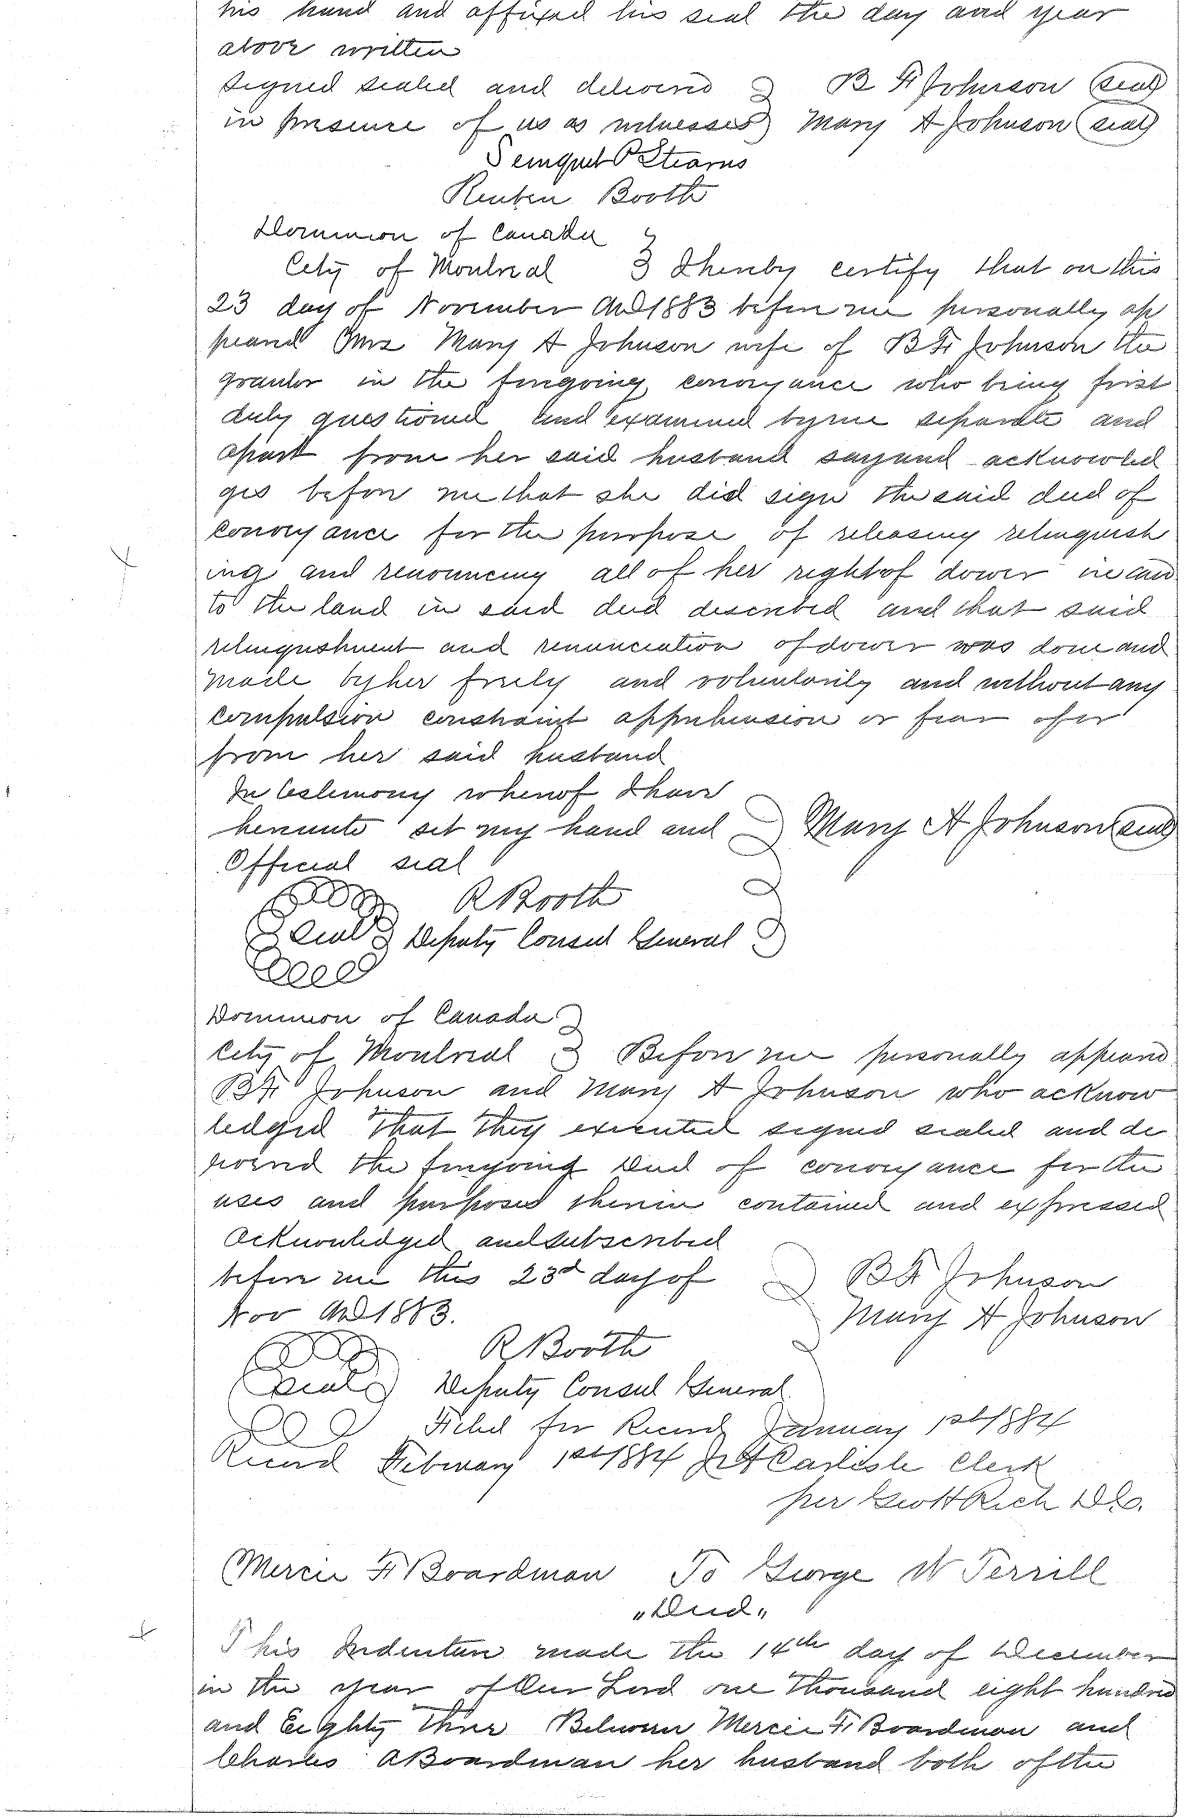 his hand and affixed his seal the day and year
above written
Signed sealed and delivered B F Johnson (seal)
in presence of us as witnesses Mary A Johnson (seal)
P Stearns
Reuben Booth
Dominion of Canada
City of Montreal I hereby certify that on this
23 day of November AD 1883 before me personally ap
peared Mrs Mary A Johnson wife of B F Johnson the
grantor in the foregoing conveyance who being first
duly questioned and examined by me separate and
apart from her said husband say and acknowled
ges before me that she did sign the said deed of
conveyance for the purpose of releasing relinquish
ing and renouncing all of her right of dower in and
to the land in said deed described and that said
relinquishment and renunciation of dower was done and
made by her freely and voluntarily and without any
compulsion constraint apprehension or fear of or
from her said husband
In testimony whereof I have
hereunto set my hand and Mary A Johnson (seal)
Official seal
R Booth
Seal Deputy Consul General
Dominion of Canada
City of Montreal Before me personally appeared
B F Johnson and Mary A Johnson who acknow
ledged that they executed signed sealed and de
livered the foregoing Deed of conveyance for the
uses and purposes therein contained and expressed
Acknowledged and subscribed
before me this 23d day of B F Johnson
Nov AD 1883. Mary A Johnson
R Booth
Seal Deputy Consul General
Filed for Record January 1st 1884
Record February 1st 1884 Carlisle Clerk
per Geo H Rich D.C.
Mercie F Boardman To George W Terrill
"Deed"
This Indenture made the 14th day of December
in the year of Our Lord one thousand eight hundred
and Eighty Three Between Mercie F Boardman and
Charles A Boardman her husband both of the